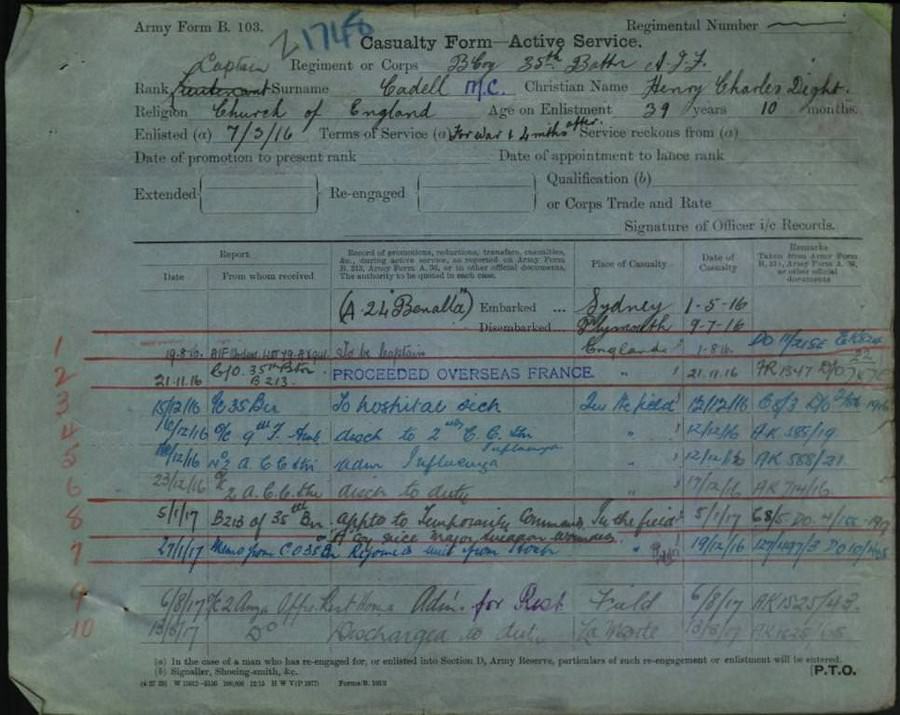 Army Form B. 103. 21748 Regimental Number
Casualty Form—Active Service.
Captain Regiment or Corps B Coy 35th Battn A.I.F.
Rank Lieutenant Surname Cadell M.C. Christian Name Henry Charles Dight.
Religion Church of England Age on Enlistment 39 years 10 months.
Enlisted (a) 7/3/16 Terms of Service (a) For war & 4 mths after. Service reckons from (a)
Date of promotion to present rank Date of appointment to lance rank
Extended Re-engaged Qualification (b)
or Corps Trade and Rate
Signature of Officer i/c Records.
Report
Date From whom received
Record of promotions, reductions, transfers, casualties, &c., during active service, as reported on Army Form B. 213, Army Form A. 36, or in other official documents. The authority to be quoted in each case.
Place of Casualty
Date of Casualty
Remarks Taken from Army Form B. 213, Army Form A. 36, or other official documents
(A.24 "Benalla") Embarked ... Sydney 1-5-16
Disembarked ... Plymouth 9-7-16
1 19.8.16. To be Captain England 1.8.16
2 21.11.16 C/O. 35th Btn. B213. PROCEEDED OVERSEAS FRANCE. " 21.11.16 FR1347
3 15/12/16 O/c 35 Bn To hospital sick In the field 12/12/16
4 /12/16 O/c 9th F. Amb disch to 2nd C.C. Stn Influenza " 12/12/16 AK 385/19
5 /12/16 No 2 A.C.C. Stn adm Influenza " 12/12/16 AK 588/21
6 23/12/16 O/c 2 A.C.C. Stn disch to duty " 17/12/16 AK 714/16
8 5/1/17 B213 of 35th Bn. appt to Temporarily Command In the field 5/1/17 68/5 D.O.
A Coy vice Major wounded
7 27/1/17 Memo from C.O 35 Bn Rejoined unit from Hosp " 19/12/16
9 6/8/17 O/c 2 Offrs Rest Home Adm. for Rest Field 6/8/17 AK1525/43.
10 13/8/17 Do Discharged to duty La Motte 13/8/17
(a) In the case of a man who has re-engaged for, or enlisted into Section D, Army Reserve, particulars of such re-engagement or enlistment will be entered.
(b) Signaller, Shoeing-smith, &c.
[P.T.O.
H W V (P 1977) Forms/B. 103/3